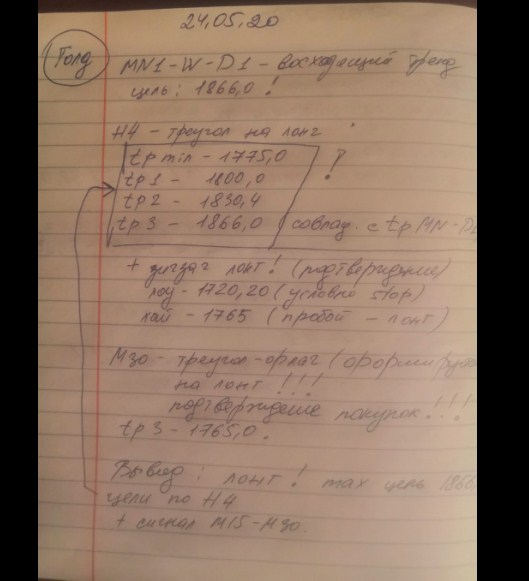 24.05.20
Голд
MN1-W-D1 - восходящий тренд
цель: 1866,0!
H4 - треугол на лонг
tp min - 1775,0
tp1 - 1800,0
tp2 - 1830,4
tp3 - 1866,0 совпад. с tp MN-D1
!
+ зигзаг лонг! (подтверждение)
лоу - 1720,20 (условно stop)
хай - 1765 (пробой - лонг)
M30 - треугол-флаг
на лонг!!!
подтверждение покупок!!!
tp3 - 1765,0.
Вывод: лонг! max цель 1866
цели по H4
+ сигнал M15-M30.